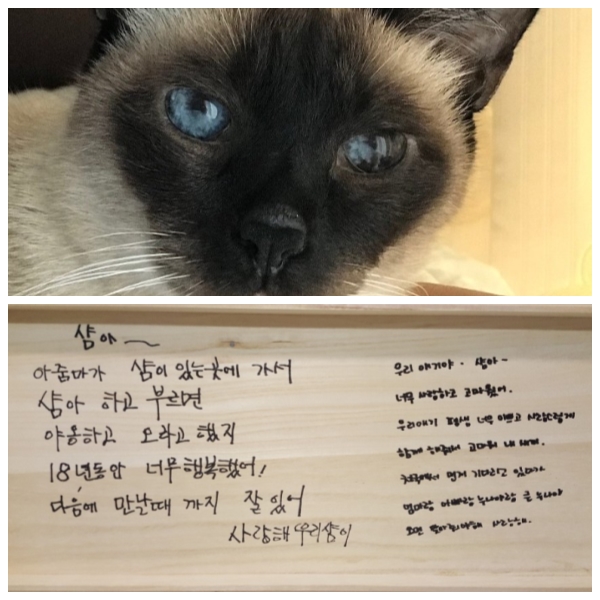 샴아~
아줌마가 샴이 있는곳에 가서
샴아 하고 부르면
야옹하고 오라고 했지
18년동안 너무 행복했어!
다음에 만날때 까지 잘 있어
사랑해 우리샴이
우리 애기야. 샴아~
너무 사랑하고 고마웠어.
우리애기 평생 너무 이쁘고 사랑스럽게
함께 해줘서 고마워 내 새끼.
먼저 기다리고 있다가
엄마랑 아빠랑 누나야랑 큰 누나야
오면 사랑해.